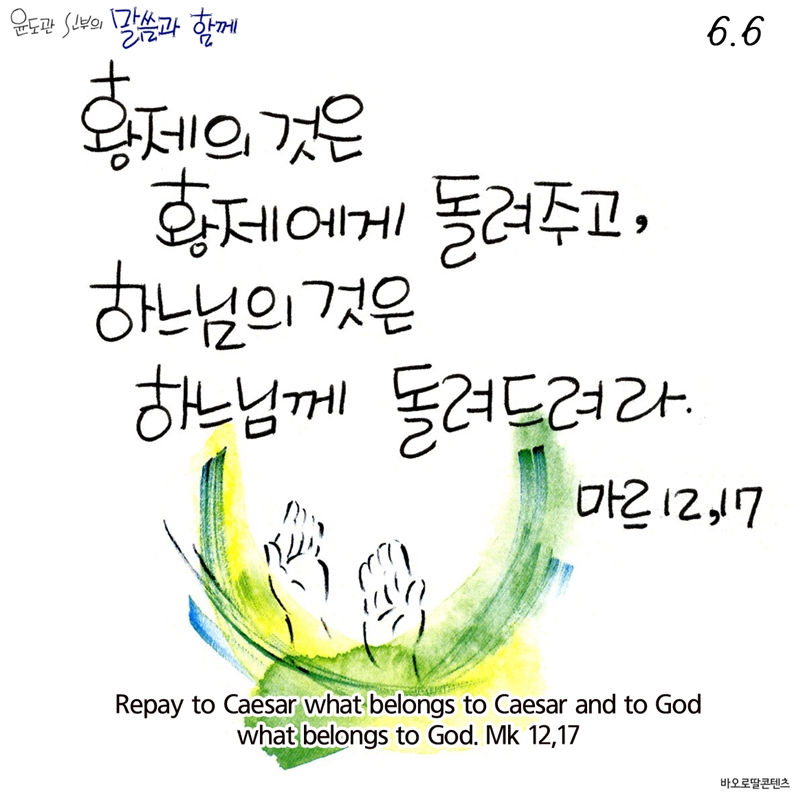 윤도관 신부의 말씀과 함께
6.6
황제의 것은
황제에게 돌려주고,
하느님의 것은
하느님께 돌려드려라.
마르 12,17
Repay to Caesar what belongs to Caesar and to God
what belongs to God. Mk 12,17
바오로딸콘텐츠